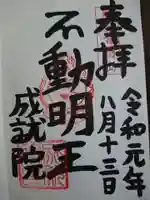 奉拝
令和元年
八月十三日
不動明王
成就院